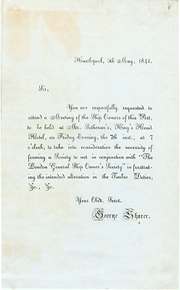 Hartlepool, 5th May, 1842.
Sir,
You are respectfully requested to
attend a Meeting of the Ship Owners of this Port,
to be held at Mr. King's Head
Hotel, on Friday Evening, the 7th inst. at 7
o'clock, to take into consideration the necessity of
forming a Society to act in conjunction with "The
London General Ship Owner's Society" in
the intended alteration in the Timber Duties,
&c., &c.
Your Obdt. Servt.
George